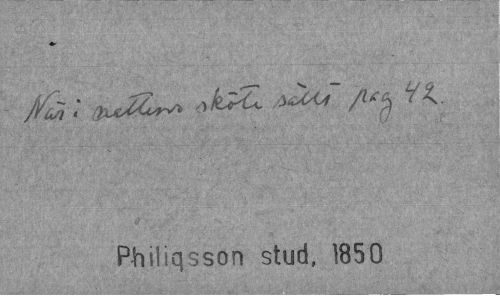 När i nattens sköte sällt pag 42.
Philiqsson stud, 1850